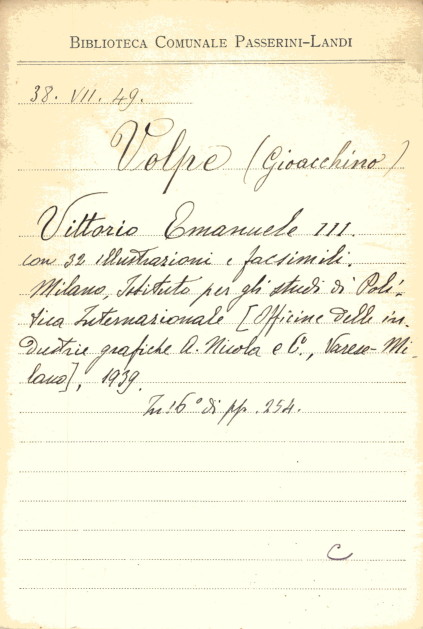 BIBLIOTECA COMUNALE PASSERINI-LANDI
38. VII. 49.
Volpe (Gioacchino)
Vittorio Emanuele III.
con 32 illustrazioni e facsimili.
Milano, Istituto per gli studi di Poli-
tica Internazionale [Officine delle in-
dustrie grafiche A. Nicola e C., Varese-Mi-
lano], 1939.
In 16° di pp. 254.
C